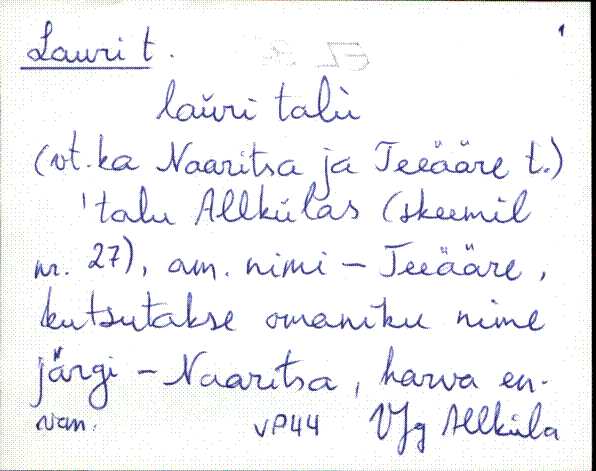 Lauri t. 1
lauri talu
(vt. ka Naaritsa ja Teeääre t.)
'talu Allkülas (skeemil
nr. 27), am. nimi – Teeääre,
kutsutakse omaniku nime
järgi – Naaritsa, harva en-
nem. VP44 VJg Allküla